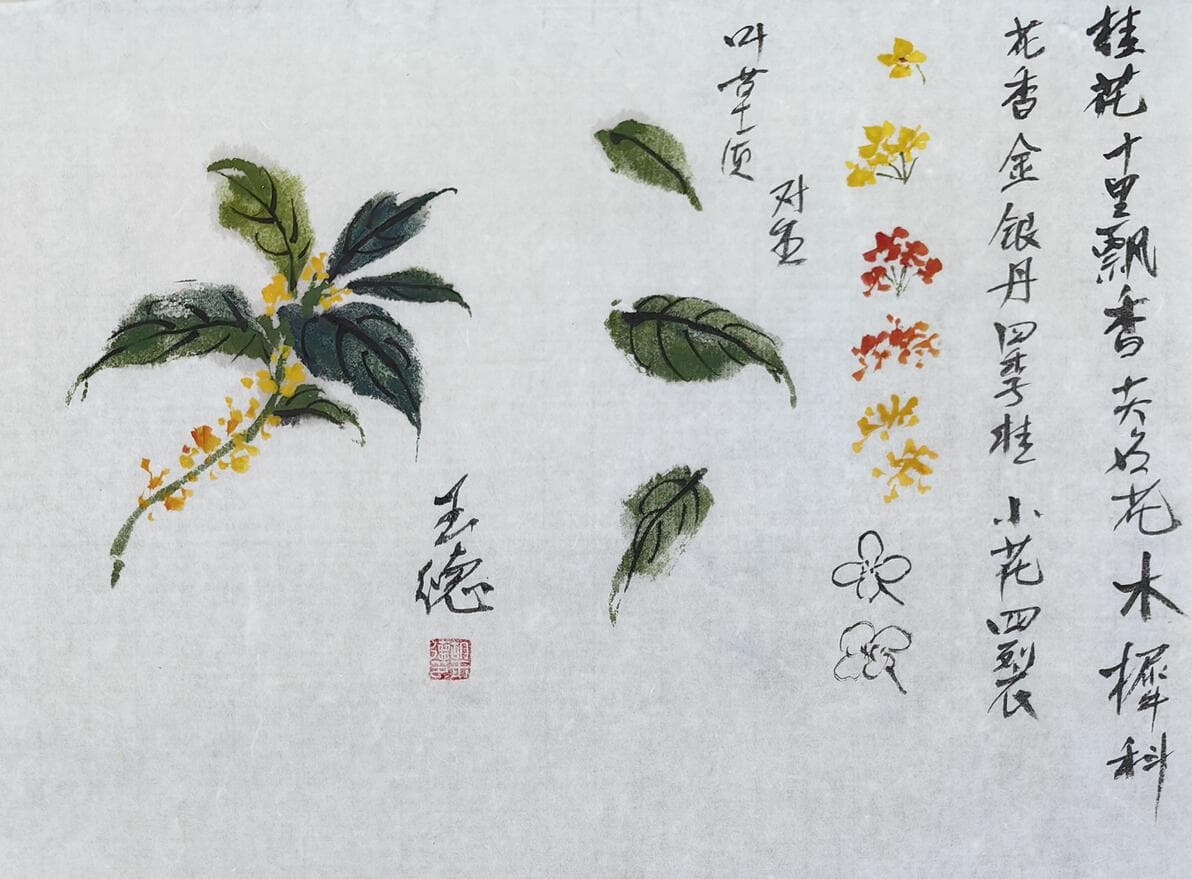 桂花十里飘香 花木樨科
花香金银丹四季桂 小花四裂
叶革质
对生
玉德